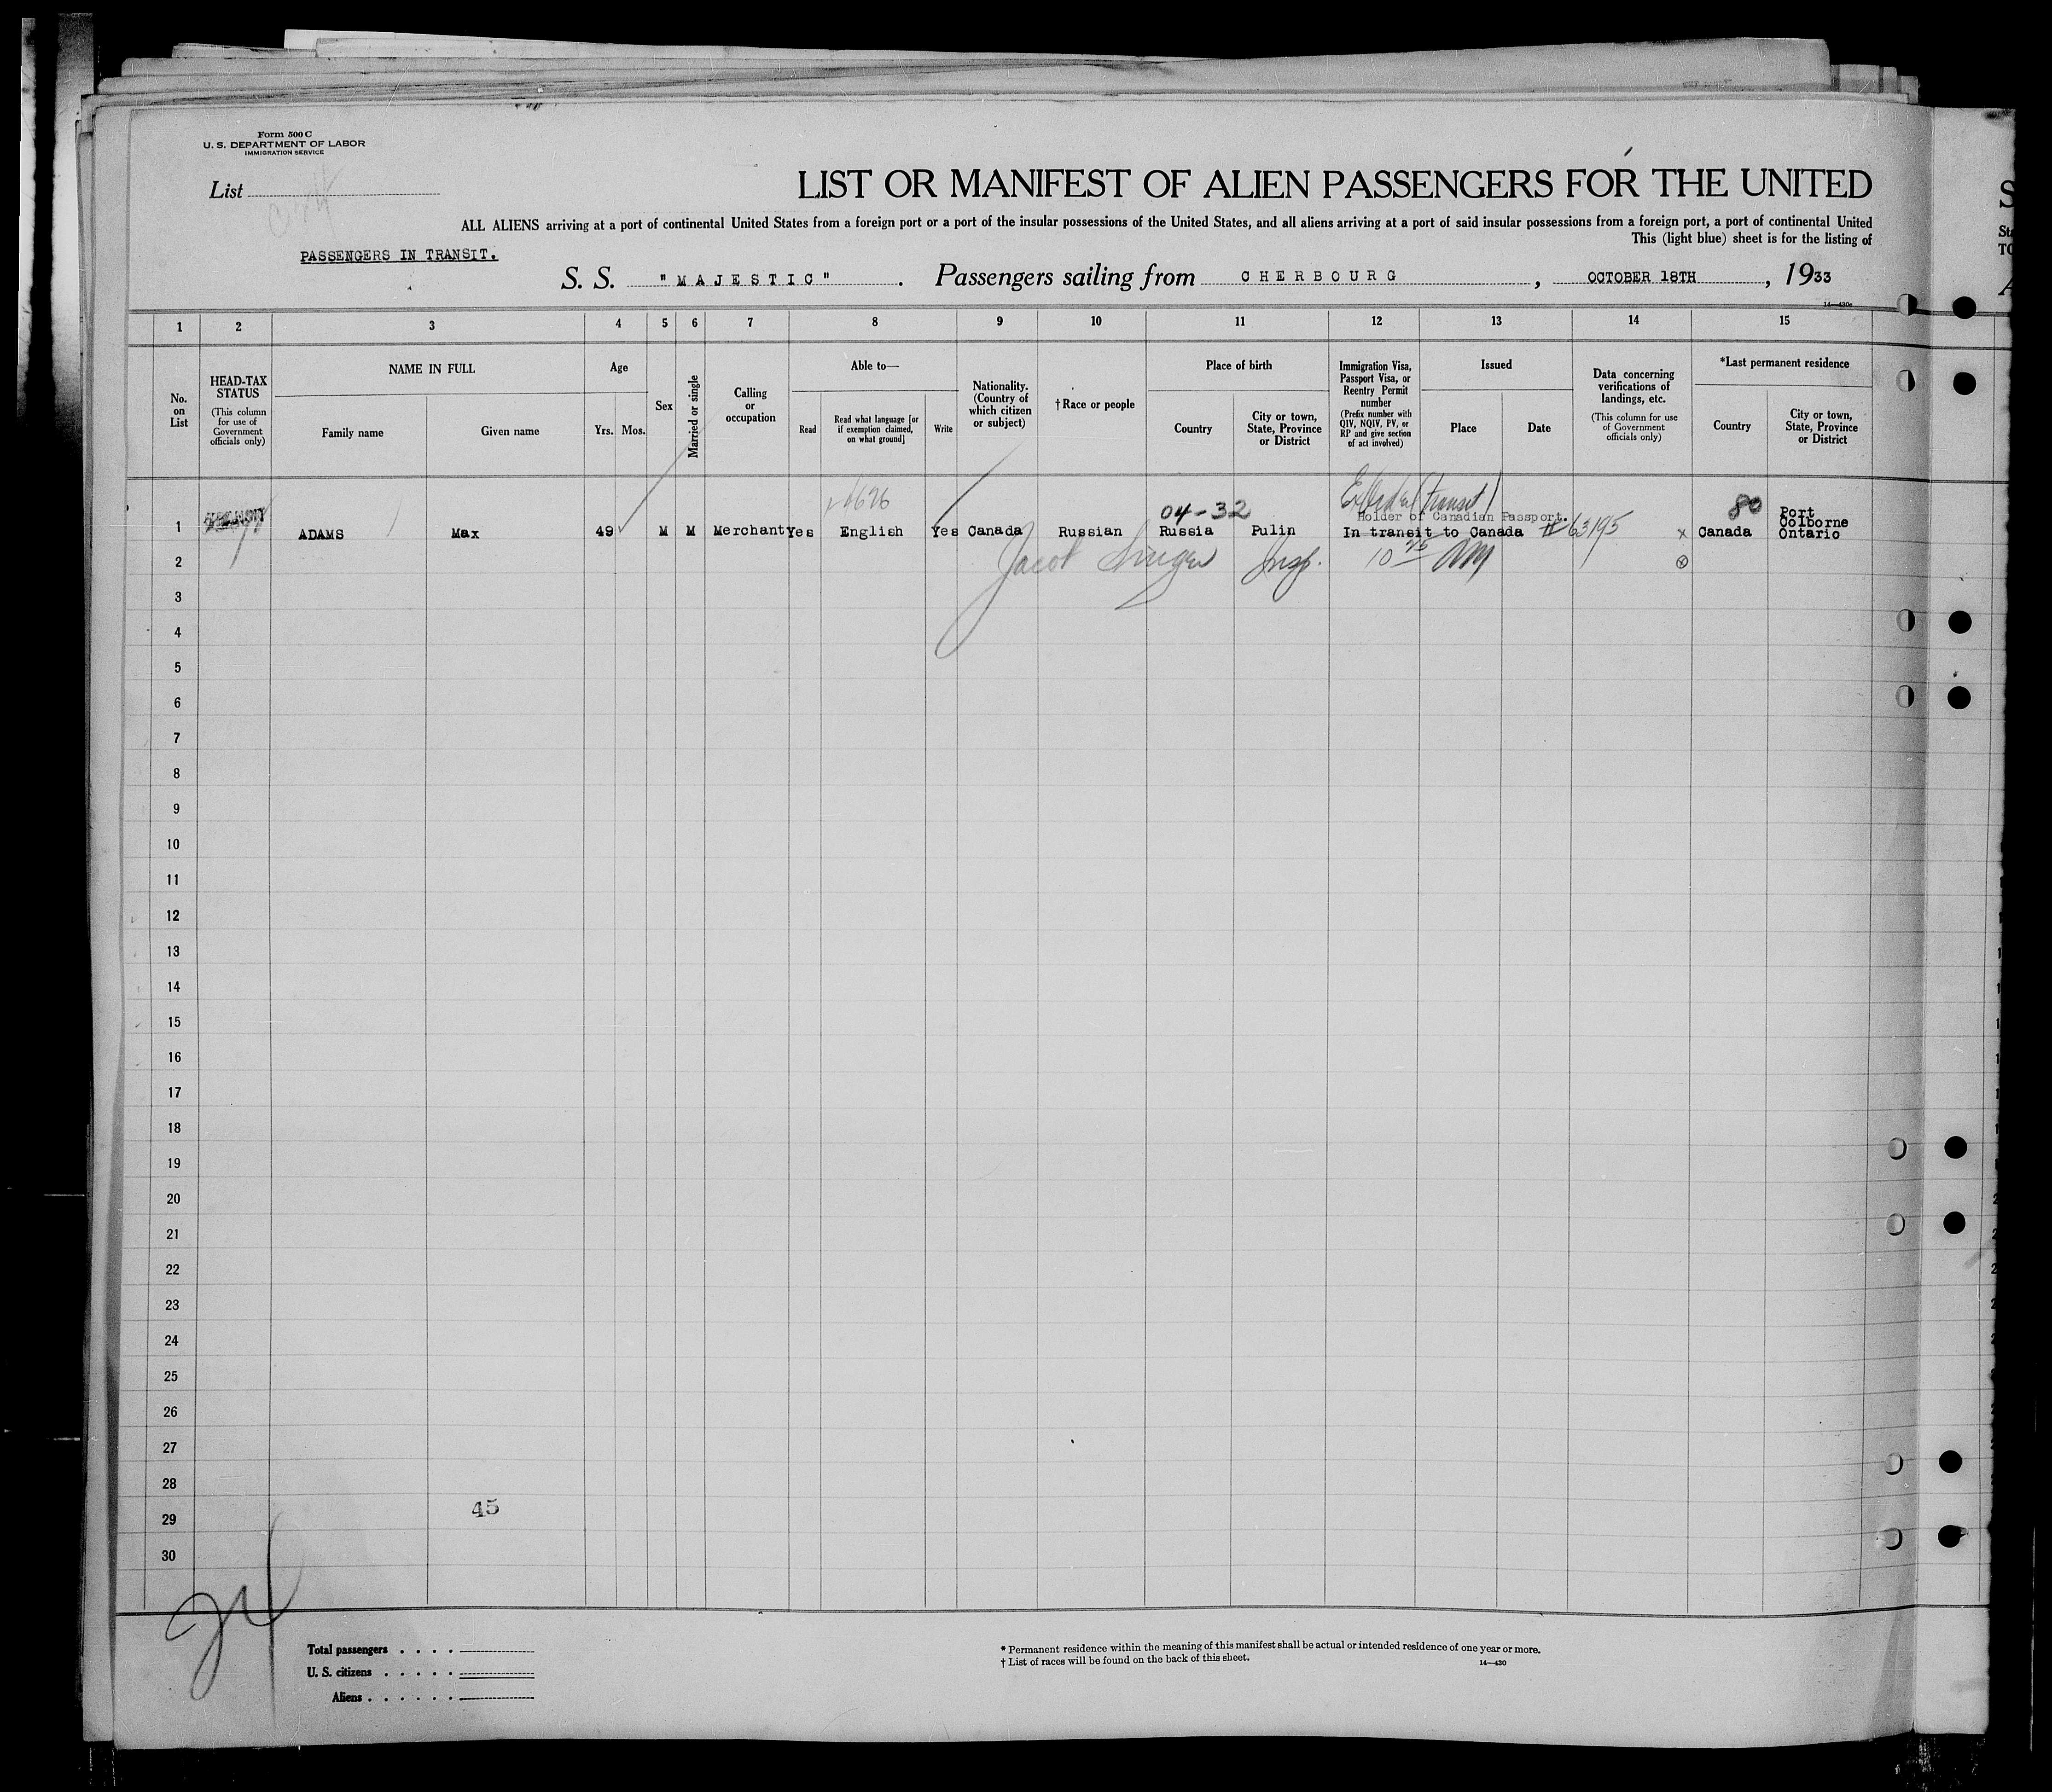 Form 500 C
U. S. DEPARTMENT OF LABOR
IMMIGRATION SERVICE
List
LIST OR MANIFEST OF ALIEN PASSENGERS FOR THE UNITED
ALL ALIENS arriving at a port of continental United States from a foreign port or a port of the insular possessions of the United States, and all aliens arriving at a port of said insular possessions from a foreign port, a port of continental United
This (light blue) sheet is for the listing of
PASSENGERS IN TRANSIT.
S. S. "MAJESTIC". Passengers sailing from CHERBOURG, OCTOBER 18TH, 1933
14—430c
1 2 3 4 5 6 7 8 9 10 11 12 13 14 15
No. on List
HEAD-TAX STATUS
(This column for use of Government officials only)
NAME IN FULL
Family name
Given name
Age
Yrs. Mos.
Sex
Married or single
Calling or occupation
Able to—
Read
Read what language [or if exemption claimed, on what ground]
Write
Nationality. (Country of which citizen or subject)
†Race or people
Place of birth
Country
City or town, State, Province or District
Immigration Visa, Passport Visa, or Reentry Permit number
(Prefix number with QIV, NQIV, PV, or RP and give section of act involved)
Issued
Place
Date
Data concerning verifications of landings, etc.
(This column for use of Government officials only)
*Last permanent residence
Country
City or town, State, Province or District
(transit)
04-32
80
Holder of Canadian Passport.
1 ADAMS Max 49 M M Merchant Yes English Yes Canada Russian Russia Pulin In transit to Canada #63195 x Canada Port Colborne Ontario
2 Jacob Insp. 10 45 AM
3
4
5
6
7
8
9
10
11
12
13
14
15
16
17
18
19
20
21
22
23
24
25
26
27
28
29
30
45
24
Total passengers
U. S. citizens
Aliens
* Permanent residence within the meaning of this manifest shall be actual or intended residence of one year or more.
† List of races will be found on the back of this sheet.
14—430